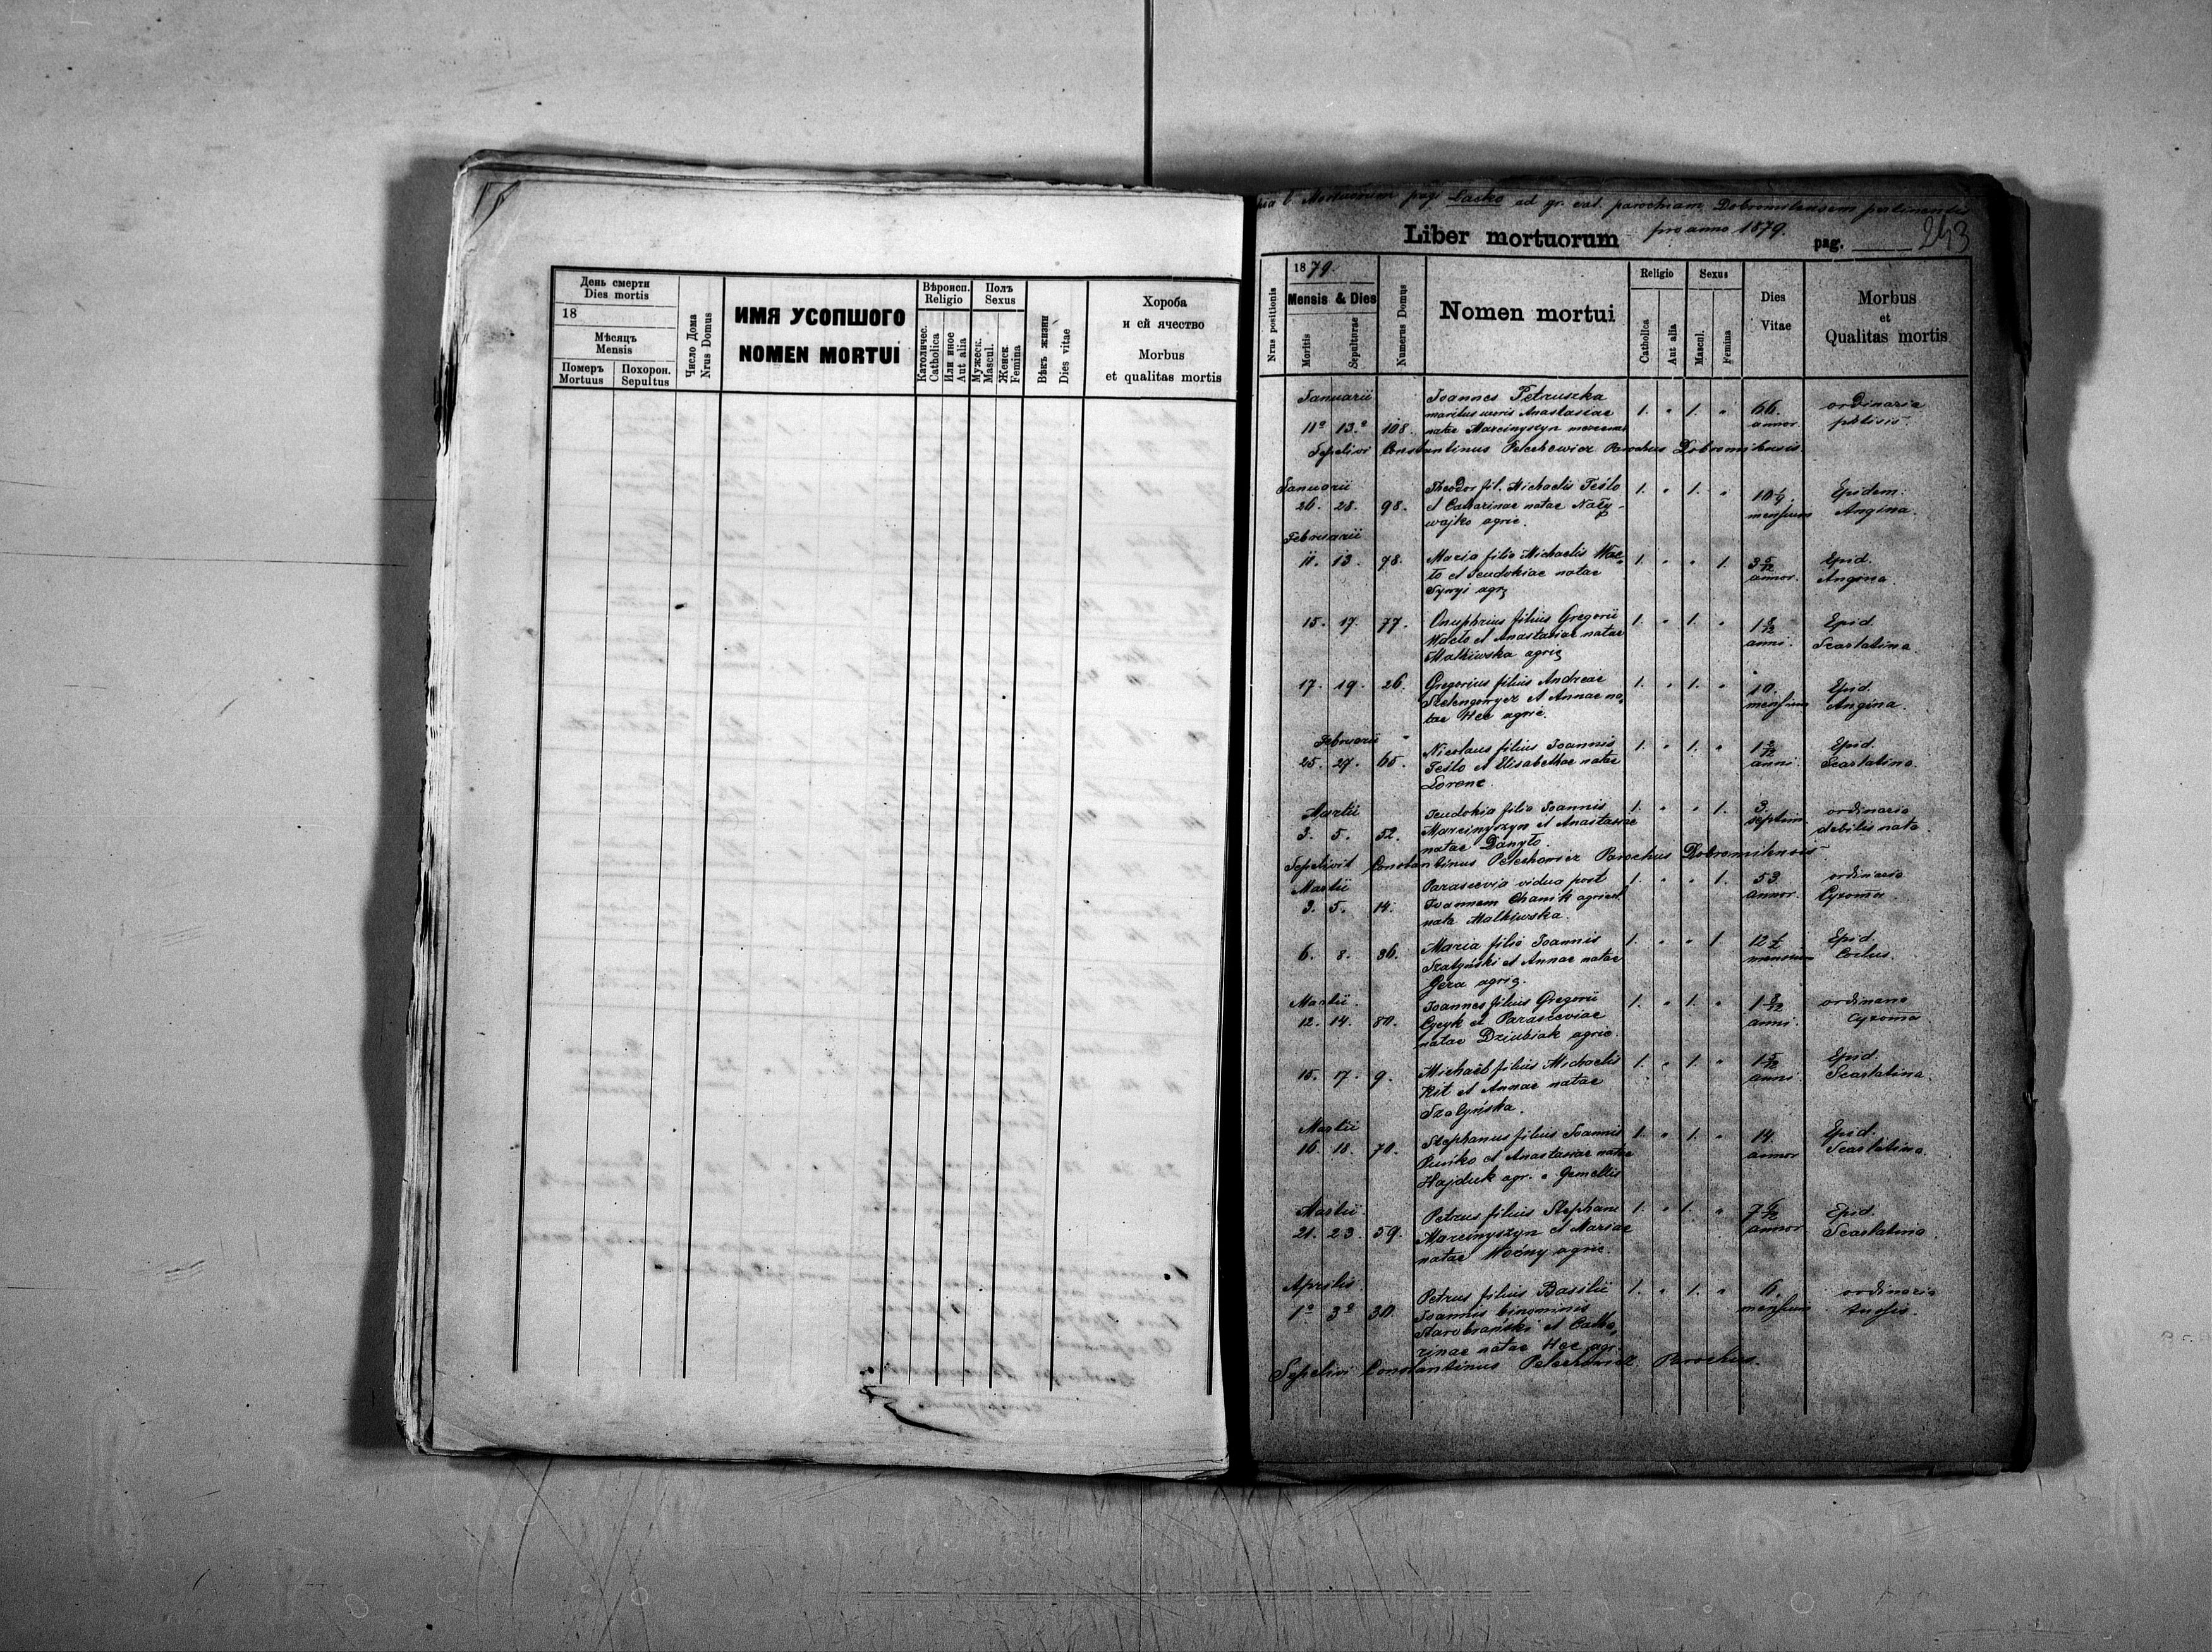 День смерти
Dies mortis
18
Мѣсяцъ
Mensis
Померъ
Mortuus
Похорон.
Sepultus
Число Дома
Nrus Domus
ИМЯ УСОПШОГО
NOMEN MORTUI
Вѣроисп.
Religio
Католичес.
Catholica
Или иное
Aut alia
Полъ
Sexus
Мужеск.
Mascul.
Женск.
Femina
Вѣкъ жизни
Dies vitae
Хороба
и ей ячество
Morbus
et qualitas mortis
Mortuorum pagi Lacko ad gr. cat. parochiam Dobromilensem pertinentis
Liber mortuorum pro anno 1879. pag. 243
Nrus positionis
1879.
Mensis & Dies
Moritis
Sepulturae
Numerus Domus
Nomen mortui
Religio
Catholica
Aut alia
Sexus
Mascul.
Femina
Dies
Vitae
Morbus
et
Qualitas mortis
Januarii Joannes Petruszka
maritus uxoris Anastasiae 1. " 1. " 66. ordinaria
11ª 13.ª 108. natae Marcinyszyn annor. phtisis
Sepelivi Constantinus Pelechowicz Parochus Dobromilensis
Januarii Theodor fil. Michaelis Teślo 1. " 1. " Epidem.
26. 28. 98. et Catharinae natae Naly- mensium Angina.
wajko agric.
Februarii
11. 13. 78. Maria filia Michaelis Wac- 1. " " 1 3 5/12 Epid.
ło et Teudokiae natae annor. Angina.
agr.
15. 17. 77. Onuphrius filius Gregorii 1. " 1. " Epid.
Wacło et Anastasiae natae anni. Scarlatina
Malkiwska agric.
17. 19. 26. Gregorius filius Andreae 1. " 1. " 10. Epid.
et Annae na- mensium Angina.
tae Hec agric.
Februarii Nicolaus filius Joannis 1. " 1. " Epid.
25. 27. 65. Teślo et Elisabethae natae anni. Scarlatina.
Lorenc.
Martii Teudokia filia Joannis 1. " " 1. 3. ordinaria
3. 5. 52. Marcinyszyn et Anastasiae septim. debilis nata.
natae Danyło.
Sepelivit Constantinus Pelechowicz Parochus Dobromilensis
Martii Parascevia vidua post 1. " " 1. 53. ordinaria
3. 5. 14. Joannem Chanik agricol. annor.
nata Malkiwska.
6. 8. 36. Maria filia Joannis 1. " " 1. 12 1/2 Epid.
Szalyński et Annae natae mensium
Gera agric.
Martii. Joannes filius Gregorii 1. " 1. " ordinaria
12. 14. 80. et Parasceviae anni.
natae Dziubiak agric.
15. 17. 9. Michaël filius Michaelis 1. " 1. " 1 5/12 Epid.
Kit et Annae natae anni Scarlatina.
Szalyńska.
Martii Stephanus filius Joannis 1. " 1. " 14. Epid.
16. 18. 70. et Anastasiae natae annor Scarlatina
Hajduk agr. Gemellis
Martii Petrus filius Stephani 1. " 1. " 7 6/12 Epid.
21. 23. 59. Marcinyszyn et Mariae annor Scarlatina
natae Moćny agric.
Aprilis Petrus filius Basilii 1. " 1. " 6. ordinaria
1ª 3ª 30. Joannis binominis mensium tussis
et Catha-
rinae natae Hec agr.
Sepelivi Constantinus Pelechowicz Parochus.